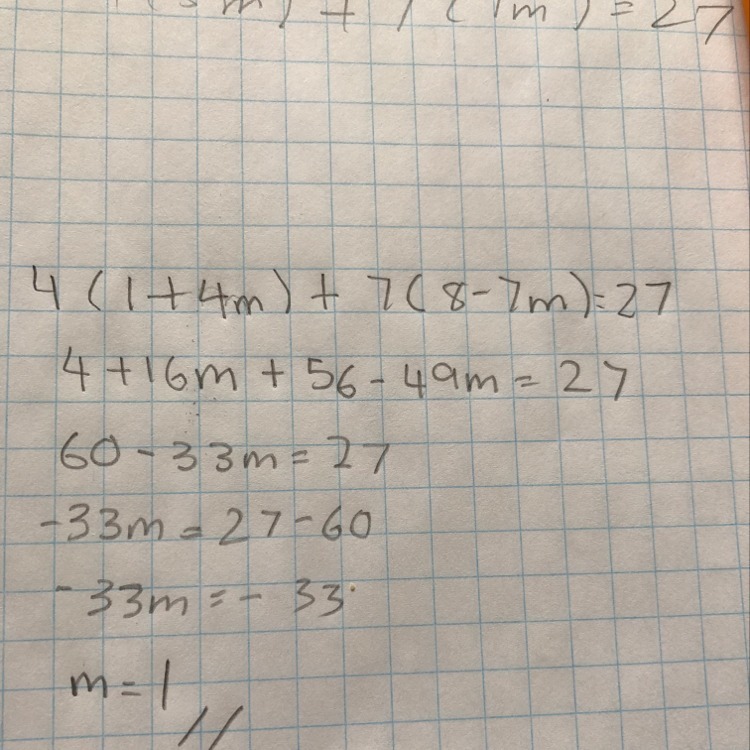 m) + 7( 7m) = 27
4(1+4m) + 7(8-7m)=27
4+16m + 56 - 49m = 27
60 - 33m = 27
-33m = 27-60
-33m = - 33
m = 1 //